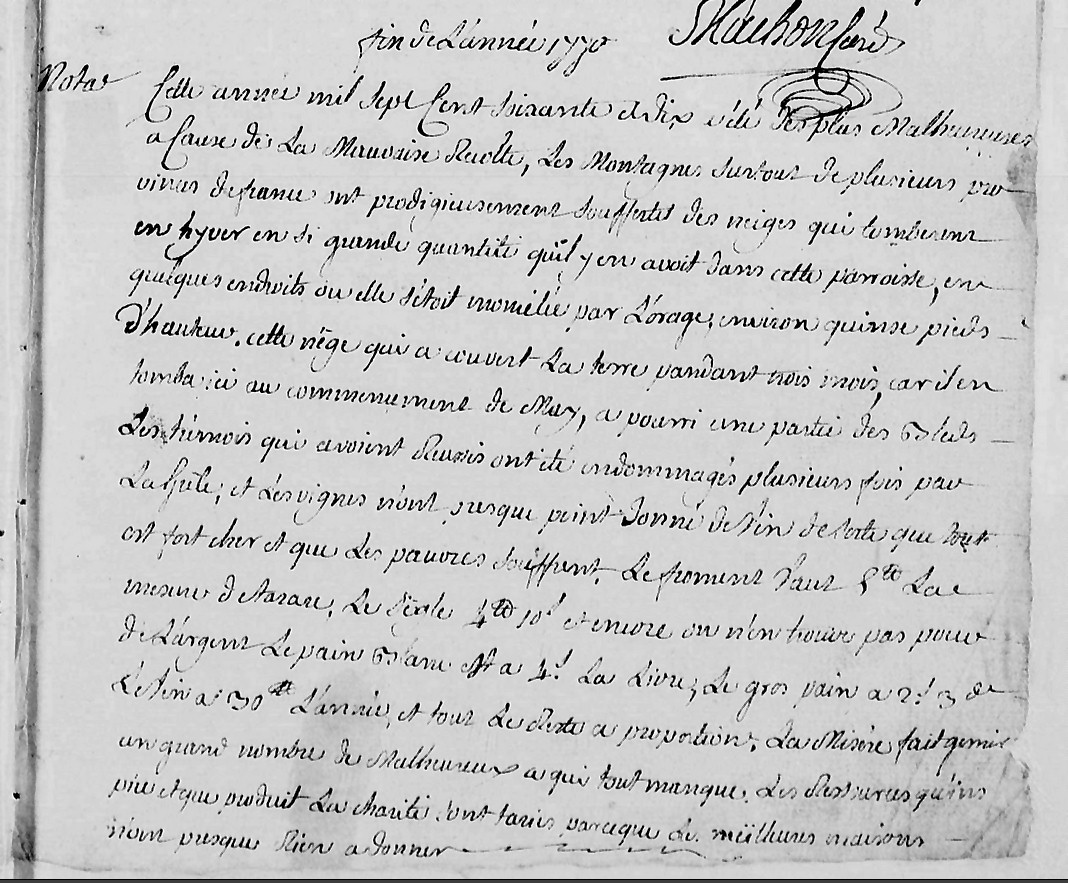 fin de L'année 1770 Machon Curé
Nota
Cette année mil sept Cent soixante et dix a été des plus Malheureuses
a Cause de La Mauvaise Recolte, Les Montagnes surtout de plusieurs pro
vinces de france ont prodigieusement souffertes des neiges qui tomberent
en hyver en si grande quantité quil y en avoit dans cette parroisse, en
quelques endroits ou elle s'étoit par L'orage, environ quinse pieds
D'hauteur. cette nége qui a couvert La terre pandant trois mois, car il en
tomba ici au commencement de May, a pourri une partie des Bleds
Les qui avoient Reussis ont été endommagés plusieurs fois par
La Grêle; et Les vignes n'ont presque point Donné de Vin de sorte que tout
est fort cher et que Les pauvres souffrent. Le froment Vaut 5tt La
mesure de tarare, Le Segle 4tt 10s et encore on n'en trouve pas pour
de L'argent Le pain Blanc est a 4s La Livre; Le gros pain a 2s 3 d
Le Vin a 30tt L'annee, et tout Le Reste a proportion; La Misère fait gemir
un grand nombre de Malheureux a qui tout manque. Les Ressources qu'ins
pire et que produit La charité sont taries parceque Les meillieures maisons
n'ont presque Rien a donner